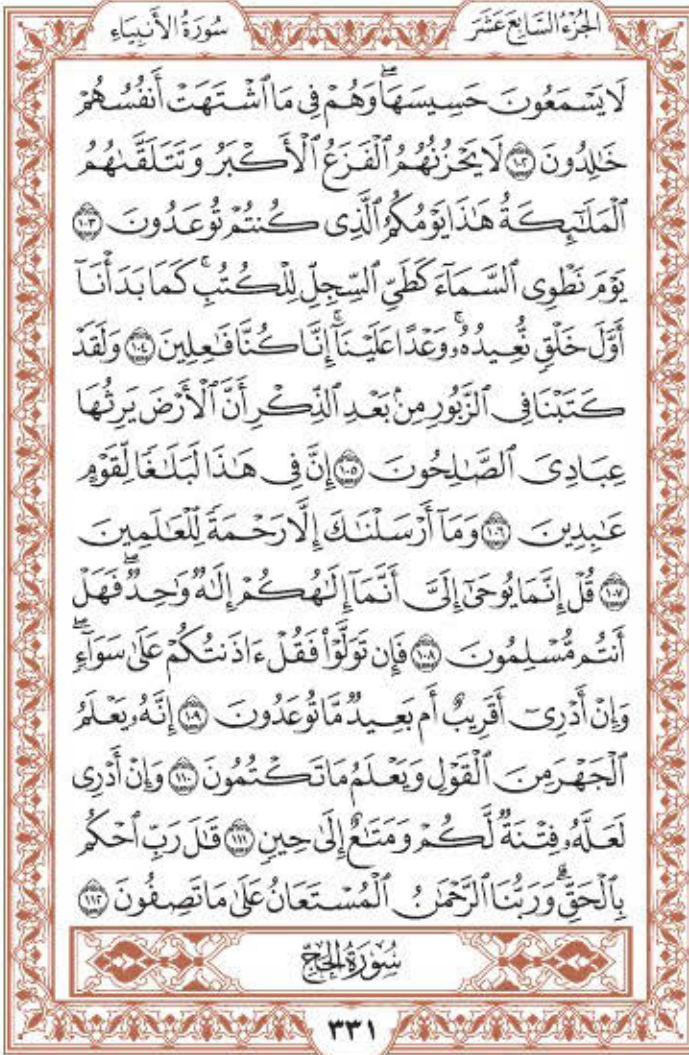 سُورَةُ الأَنبِيَاءِ
الجُزْءُ السَّابِعَ عَشَرَ
لَا يَسْمَعُونَ حَسِيسَهَاۖ وَهُمْ فِى مَا ٱشْتَهَتْ أَنفُسُهُمْ
خَٰلِدُونَ ١٠٢ لَا يَحْزُنُهُمُ ٱلْفَزَعُ ٱلْأَكْبَرُ وَتَتَلَقَّىٰهُمُ
ٱلْمَلَٰٓئِكَةُ هَٰذَا يَوْمُكُمُ ٱلَّذِى كُنتُمْ تُوعَدُونَ ١٠٣
يَوْمَ نَطْوِى ٱلسَّمَآءَ كَطَىِّ ٱلسِّجِلِّ لِلْكُتُبِۚ كَمَا بَدَأْنَآ
أَوَّلَ خَلْقٍ نُّعِيدُهُۥۚ وَعْدًا عَلَيْنَآۚ إِنَّا كُنَّا فَٰعِلِينَ ١٠٤ وَلَقَدْ
كَتَبْنَا فِى ٱلزَّبُورِ مِنۢ بَعْدِ ٱلذِّكْرِ أَنَّ ٱلْأَرْضَ يَرِثُهَا
عِبَادِىَ ٱلصَّٰلِحُونَ ١٠٥ إِنَّ فِى هَٰذَا لَبَلَٰغًا لِّقَوْمٍ
عَٰبِدِينَ ١٠٦ وَمَآ أَرْسَلْنَٰكَ إِلَّا رَحْمَةً لِّلْعَٰلَمِينَ
١٠٧ قُلْ إِنَّمَا يُوحَىٰٓ إِلَىَّ أَنَّمَآ إِلَٰهُكُمْ إِلَٰهٌ وَٰحِدٌۖ فَهَلْ
أَنتُم مُّسْلِمُونَ ١٠٨ فَإِن تَوَلَّوْا۟ فَقُلْ ءَاذَنتُكُمْ عَلَىٰ سَوَآءٍۖ
وَإِنْ أَدْرِىٓ أَقَرِيبٌ أَم بَعِيدٌ مَّا تُوعَدُونَ ١٠٩ إِنَّهُۥ يَعْلَمُ
ٱلْجَهْرَ مِنَ ٱلْقَوْلِ وَيَعْلَمُ مَا تَكْتُمُونَ ١١٠ وَإِنْ أَدْرِى
لَعَلَّهُۥ فِتْنَةٌ لَّكُمْ وَمَتَٰعٌ إِلَىٰ حِينٍ ١١١ قَٰلَ رَبِّ ٱحْكُم
بِٱلْحَقِّۗ وَرَبُّنَا ٱلرَّحْمَٰنُ ٱلْمُسْتَعَانُ عَلَىٰ مَا تَصِفُونَ ١١٢
سُورَةُ الحَجِّ
٣٣١